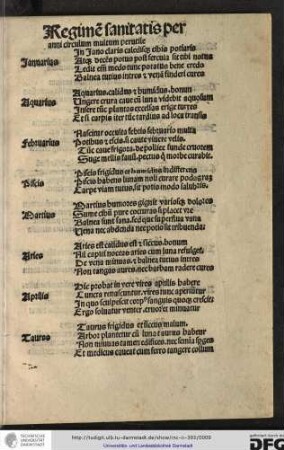 Regimē sanitatis per
anni circulum multum perutile
In Jano claris calidisq; cibis potiaris
Januarius
Atq; decēs potus post fercula sit tibi notus
Ledit em̄ medo tunc potatus bene credo
Balnea tutius intres ⁊ venā findere cures
Aquarius calidus ⁊ humidus bonum
Aquarius
Ungere crura cave cū luna videbit aquosum
Insere tūc plantas excelsas erige turres
Et si carpis iter tūc tardius ad loca transis
Nascitur occulta febris februario multa
Februarius
Potibus ⁊ escis si caute vivere velis
Tūc cave frigora de pollice funde cruorem
Suge mellis favū pectus q̄ morbos curabit
Piscis frigidus est humidus indifferens
Piscis
Piscis habens lunam noli curare podagras
Carpe viam tutus sit potio modo salubris
Martius humores gignit variosq; dolores
Martius
Sume cibū pure cocturas si placet ure
Balnea sunt sana sed que superflua vana
Vena nec abdenda nec potio sit tribuenda
Aries est calidus est ⁊ siccus bonum
Aries
Nil capiti noceas aries cum luna refulget
De vena minuas ⁊ balnea tutius intres
Non tangas aures nec barbam radere cures
Hic probat in vere vires aprilis habere
Aprilis
Cuncta renascuntur vires tunc aperiuntur
In quo scalpescit corpꝰ sanguis quoq; crescit
Ergo solvatur venter cruorq; minuatur
Taurus frigidus est siccus malum
Taurus
Arbor plantetur cū luna taurus habetur
Non minuas tamen edifices nec semīa spargas
Et medicus caveat cum ferro tangere collum
TECHNISCHE UNIVERSITÄT DARMSTADT
http://tudigit.ulb.tu-darmstadt.de/show/inc-ii-393/0009
Universitäts- und Landesbibliothek Darmstadt
DFG